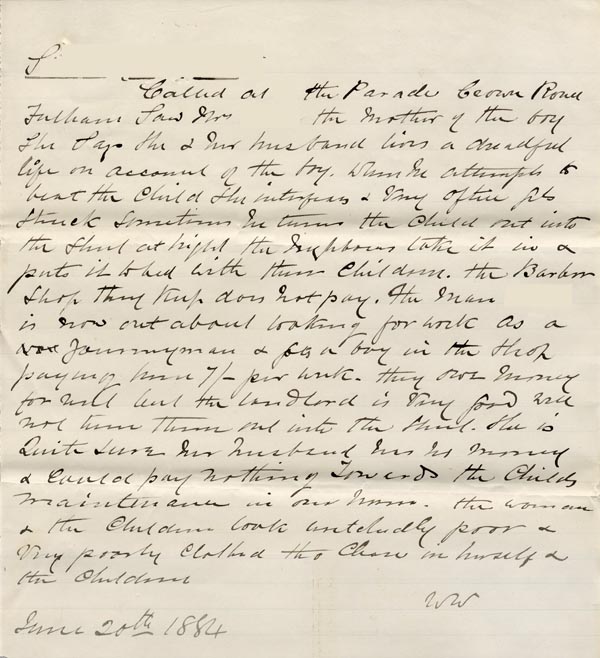 S
Called at the Parade Crown Road
Fulham Saw Mrs the Mother of the boy
She Says She & Her husband lives a dreadful
life on account of the boy. When He attempts to
beat the Child She interferes & Very often gets
Struck Sometimes He turns the Child out into
the Street at night the Neighbours take it in &
puts it to bed with their Children. the Barbers
Shop they Keep does Not pay. the Man
is now out about looking for work as a
Journeyman & a boy in the Shop
paying him 7/- per week. they owe Money
for but the landlord is Very good will
not turn them out into the Street. She is
Quite Sure Her Husband Has No Money
& Could pay Nothing Towards the Childs
Maintenance in our Home. the woman
& the Children look wretchedly poor &
Very poorly Clothed tho Clean in herself &
the Children
WW
June 20th 1884